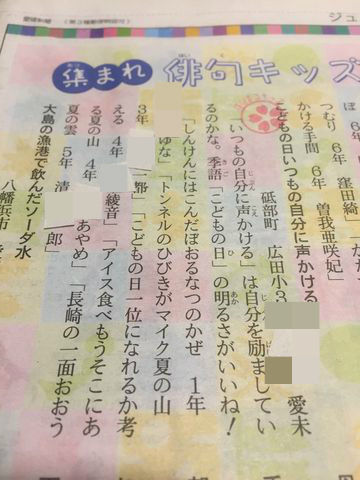 愛媛新聞 (第3種郵便物認可)
ジュ
集まれ 俳句キッズ
ぼ 6年 窪田綺
つむり 6年 曽我亜咲妃」
かける手間 6年
こどもの日いつもの自分に声かける
砥部町 広田小3
愛未
「いつもの自分に声かける」は自分を励ましてい
るのかな。季語「こどもの日」の明るさがいいね!
「しんけんにはこんだぼおるなつのかぜ 1年
ゆな」「トンネルのひびきがマイク夏の山
3年 「こどもの日一位になれるか考
える 4年 綾音」「アイス食べもうそこにあ
る夏の山 4年 あやめ」「長崎の一面おおう
夏の雲 5年 清 郎」
大島の漁港で飲んだソーダ水
八幡浜市